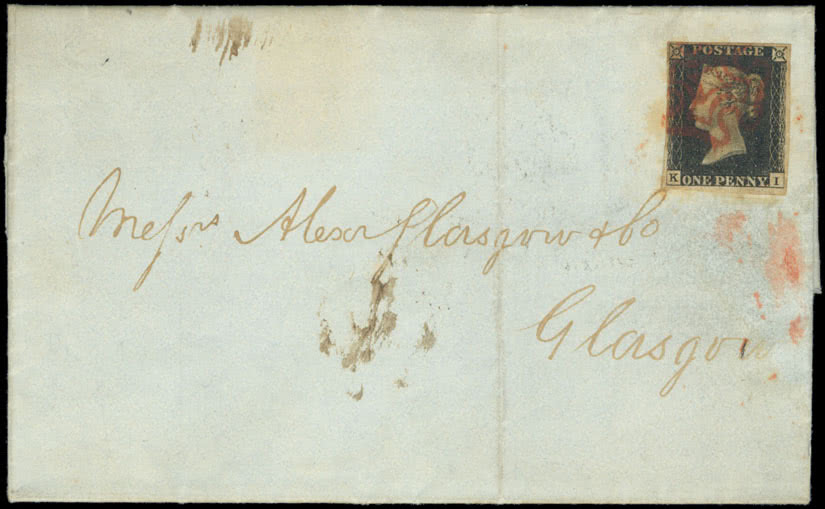 POSTAGE
K ONE PENNY. I
Messrs Alexr Glasgow & Co
Glasgow